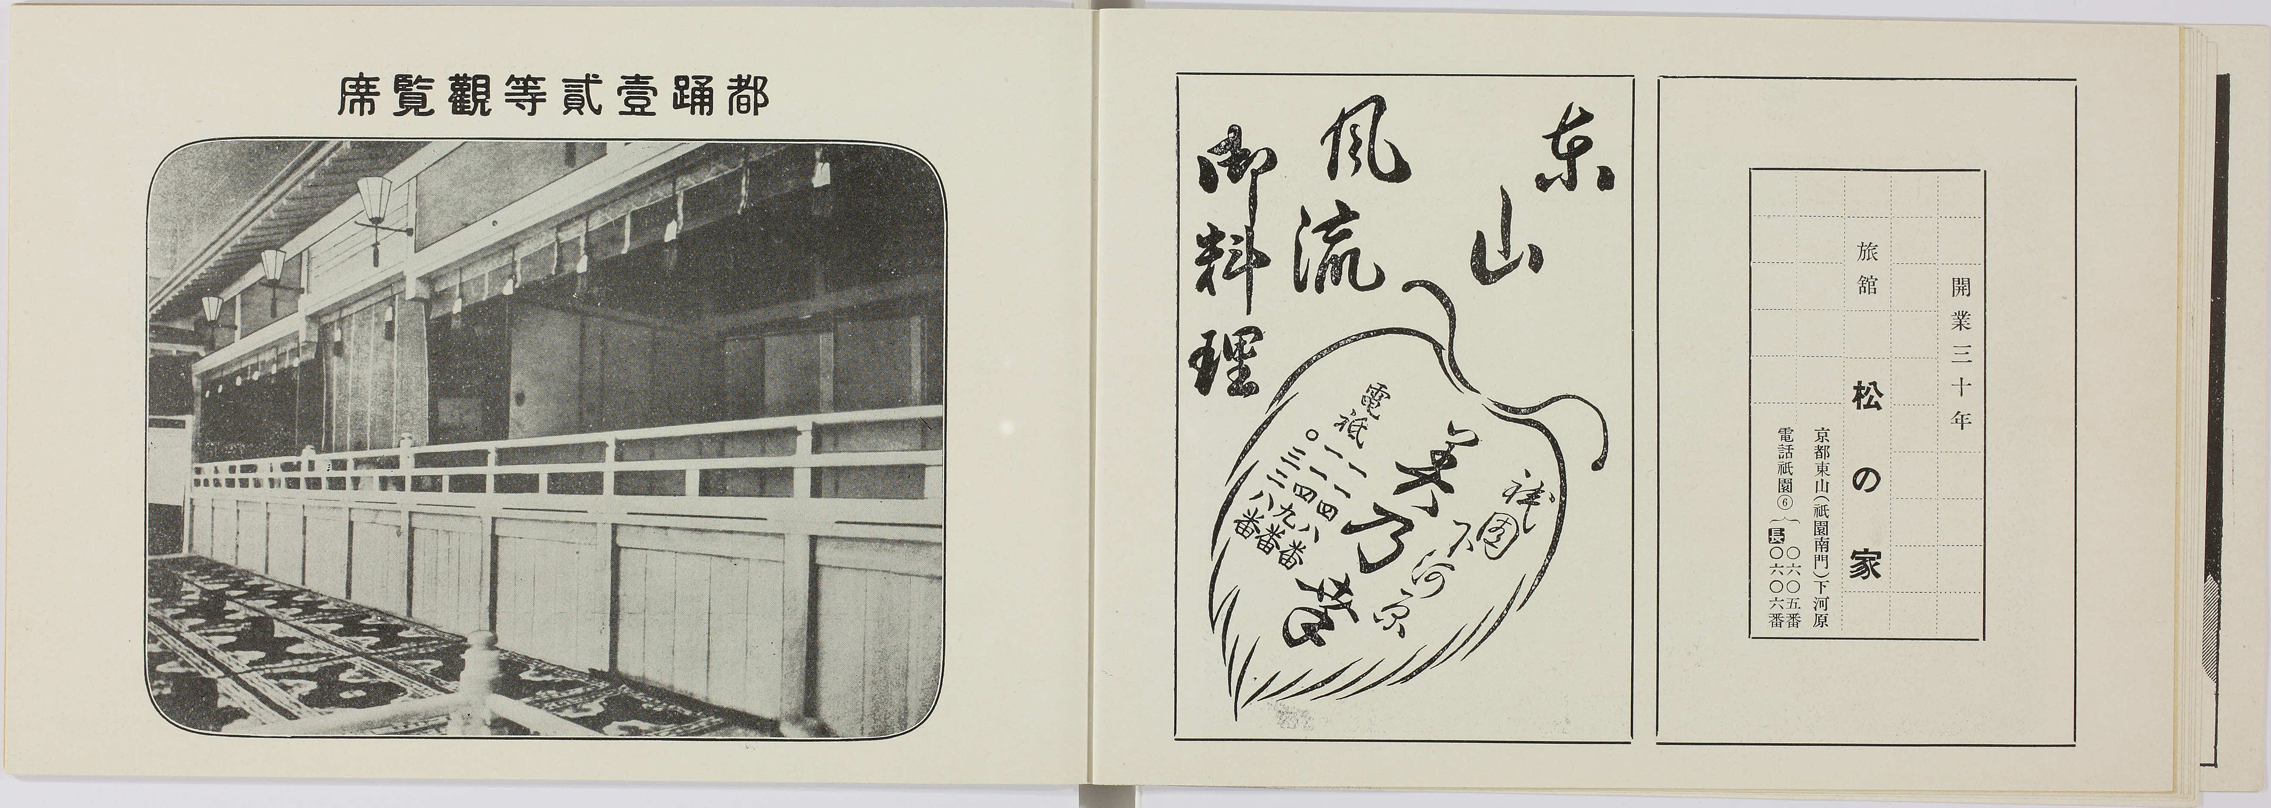 開業三十年
旅舘 松の家
京都東山(祇園南門)下河原
電話祇園⑥
〇六〇五番
長〇六〇六番
東山
風流
御料理
祇園下河原
美乃幸
電祇
一一四八番
一一四九番
〇三二八番
都踊壹貳等觀覧席